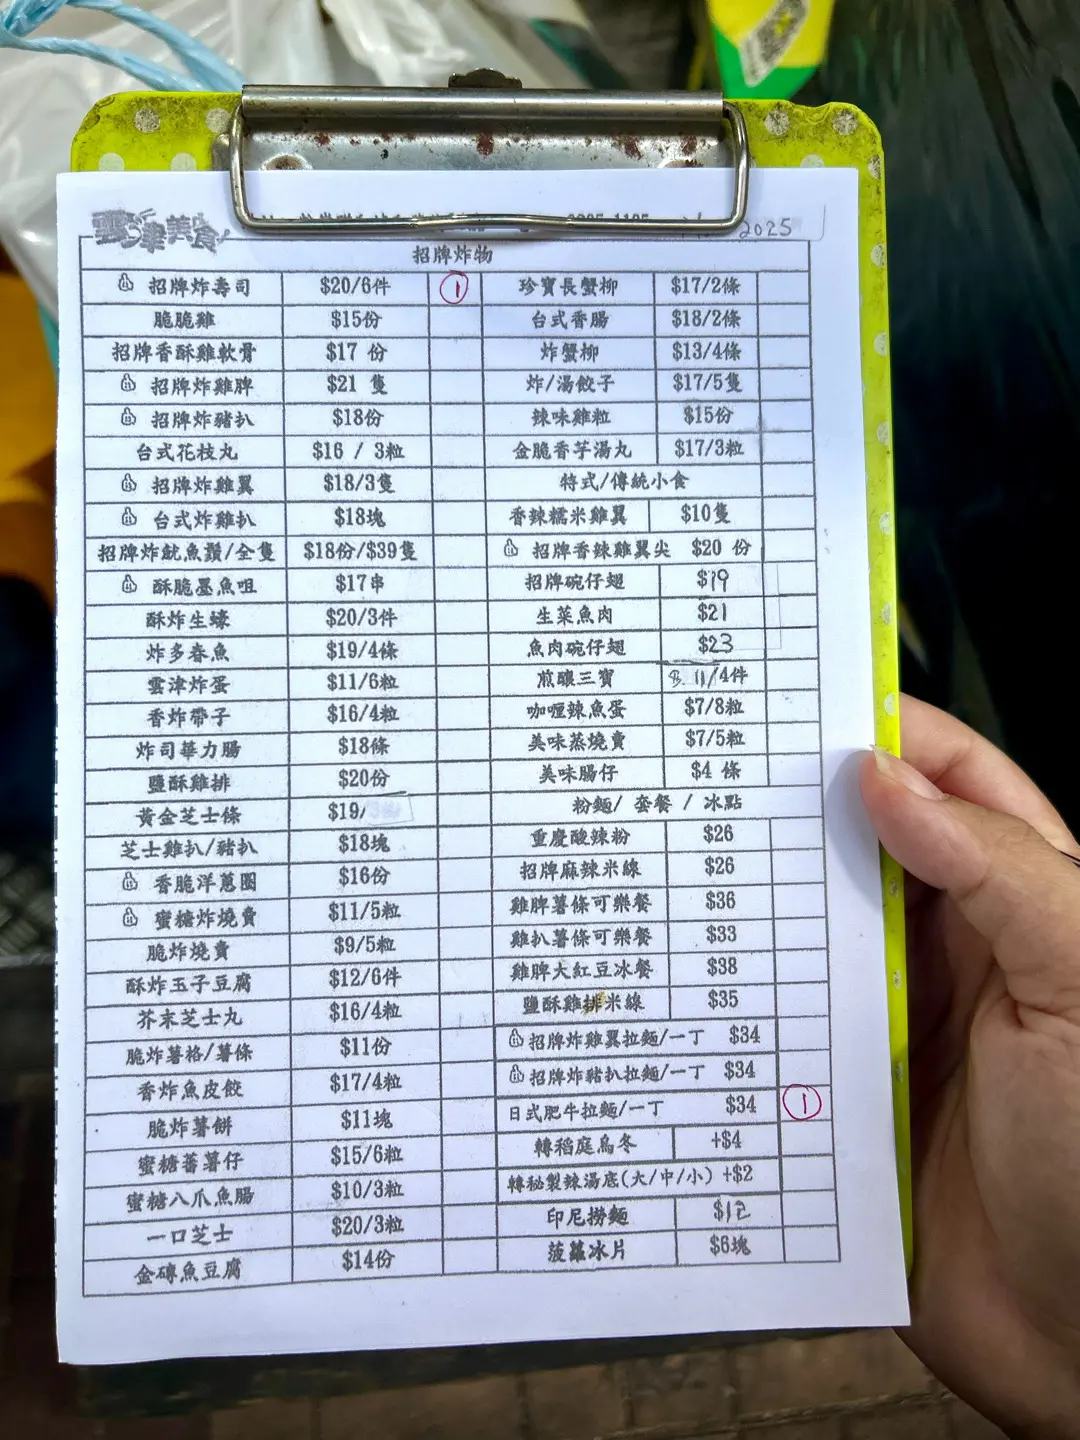 雲津美食 2025
招牌炸物
招牌炸壽司 $20/6件 1 珍寶長蟹柳 $17/2條
脆脆雞 $15份 台式香腸 $18/2條
招牌香酥雞軟骨 $17 份 炸蟹柳 $13/4條
招牌炸雞脾 $21 隻 炸/湯餃子 $17/5隻
招牌炸豬扒 $18份 辣味雞粒 $15份
台式花枝丸 $16 / 3粒 金脆香芋湯丸 $17/3粒
招牌炸雞翼 $18/3隻 特式/傳統小食
台式炸雞扒 $18塊 香辣糯米雞翼 $10隻
招牌炸魷魚鬚/全隻 $18份/$39隻 招牌香辣雞翼尖 $20 份
酥脆墨魚咀 $17串 招牌碗仔翅 $19
酥炸生蠔 $20/3件 生菜魚肉 $21
炸多春魚 $19/4條 魚肉碗仔翅 $23
雲津炸蛋 $11/6粒 煎釀三寶 11/4件
香炸帶子 $16/4粒 咖喱辣魚蛋 $7/8粒
炸司華力腸 $18條 美味蒸燒賣 $7/5粒
鹽酥雞排 $20份 美味腸仔 $4 條
黃金芝士條 $19/ 粉麵/ 套餐 / 冰點
芝士雞扒/豬扒 $18塊 重慶酸辣粉 $26
香脆洋蔥圈 $16份 招牌麻辣米線 $26
蜜糖炸燒賣 $11/5粒 雞脾薯條可樂餐 $36
脆炸燒賣 $9/5粒 雞扒薯條可樂餐 $33
酥炸玉子豆腐 $12/6件 雞脾大紅豆冰餐 $38
芥末芝士丸 $16/4粒 鹽酥雞排米線 $35
脆炸薯格/薯條 $11份 招牌炸雞翼拉麵/一丁 $34
香炸魚皮餃 $17/4粒 招牌炸豬扒拉麵/一丁 $34
脆炸薯餅 $11塊 日式肥牛拉麵/一丁 $34 1
蜜糖蕃薯仔 $15/6粒 轉稻庭烏冬 +$4
蜜糖八爪魚腸 $10/3粒 轉秘製辣湯底(大/中/小) +$2
一口芝士 $20/3粒 印尼撈麵 $12
金磚魚豆腐 $14份 菠蘿冰片 $6塊